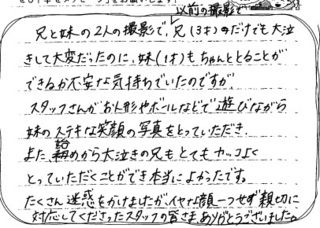 以前の撮影で
兄と妹の2人の撮影で、兄(3才)のだけでも大泣
きして大変だったのに、妹(1才)もちゃんととることが
できるか不安な気持ちでいたのですが
スタッフさんがお人形やボールなどで遊びながら
妹のステキな笑顔の写真をとっていただき、
また、始めから大泣きの兄もとてもカッコよく
とっていただくことができ本当によかったです。
たくさん迷惑をかけましたが、イヤな顔一つせず親切に
対応してくださったスタッフの皆さまありがとうございました。